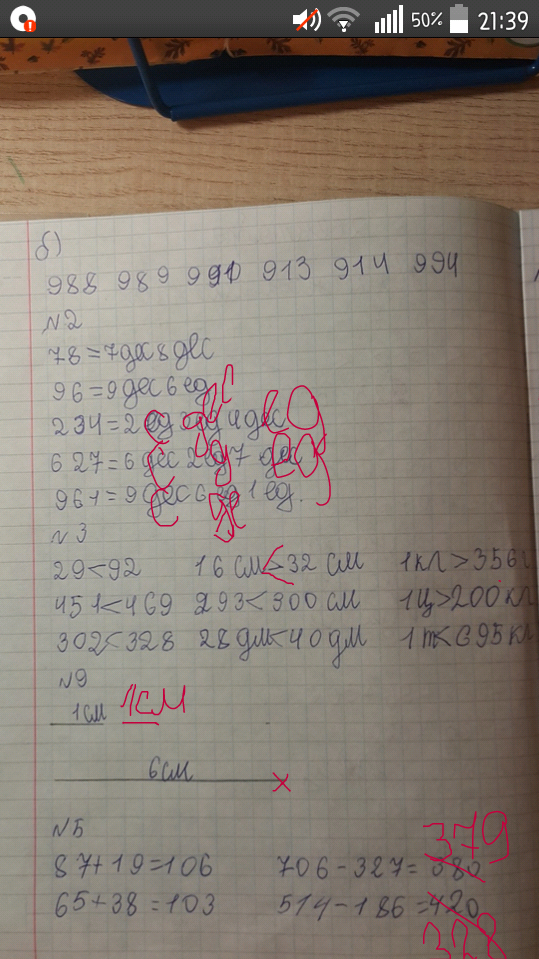 50% 21:39
б)
988 989 990 913 914 994
№2
78=7дес 8 дес
96=9 дес 6 ед
234=2 ед 4 дес
627=6 дес 2 ед 7 дес
961=9 дес 6 1 ед.
№3
29<92 16 см 32 см 1кл>356
451<469 293<300 см 1ц>200кл
302<328 28дм<40дм 1т<695кл
№9
1см 1см
6см
№5
379
87+19=106 706-327=380
65+38=103 514-186=420
328